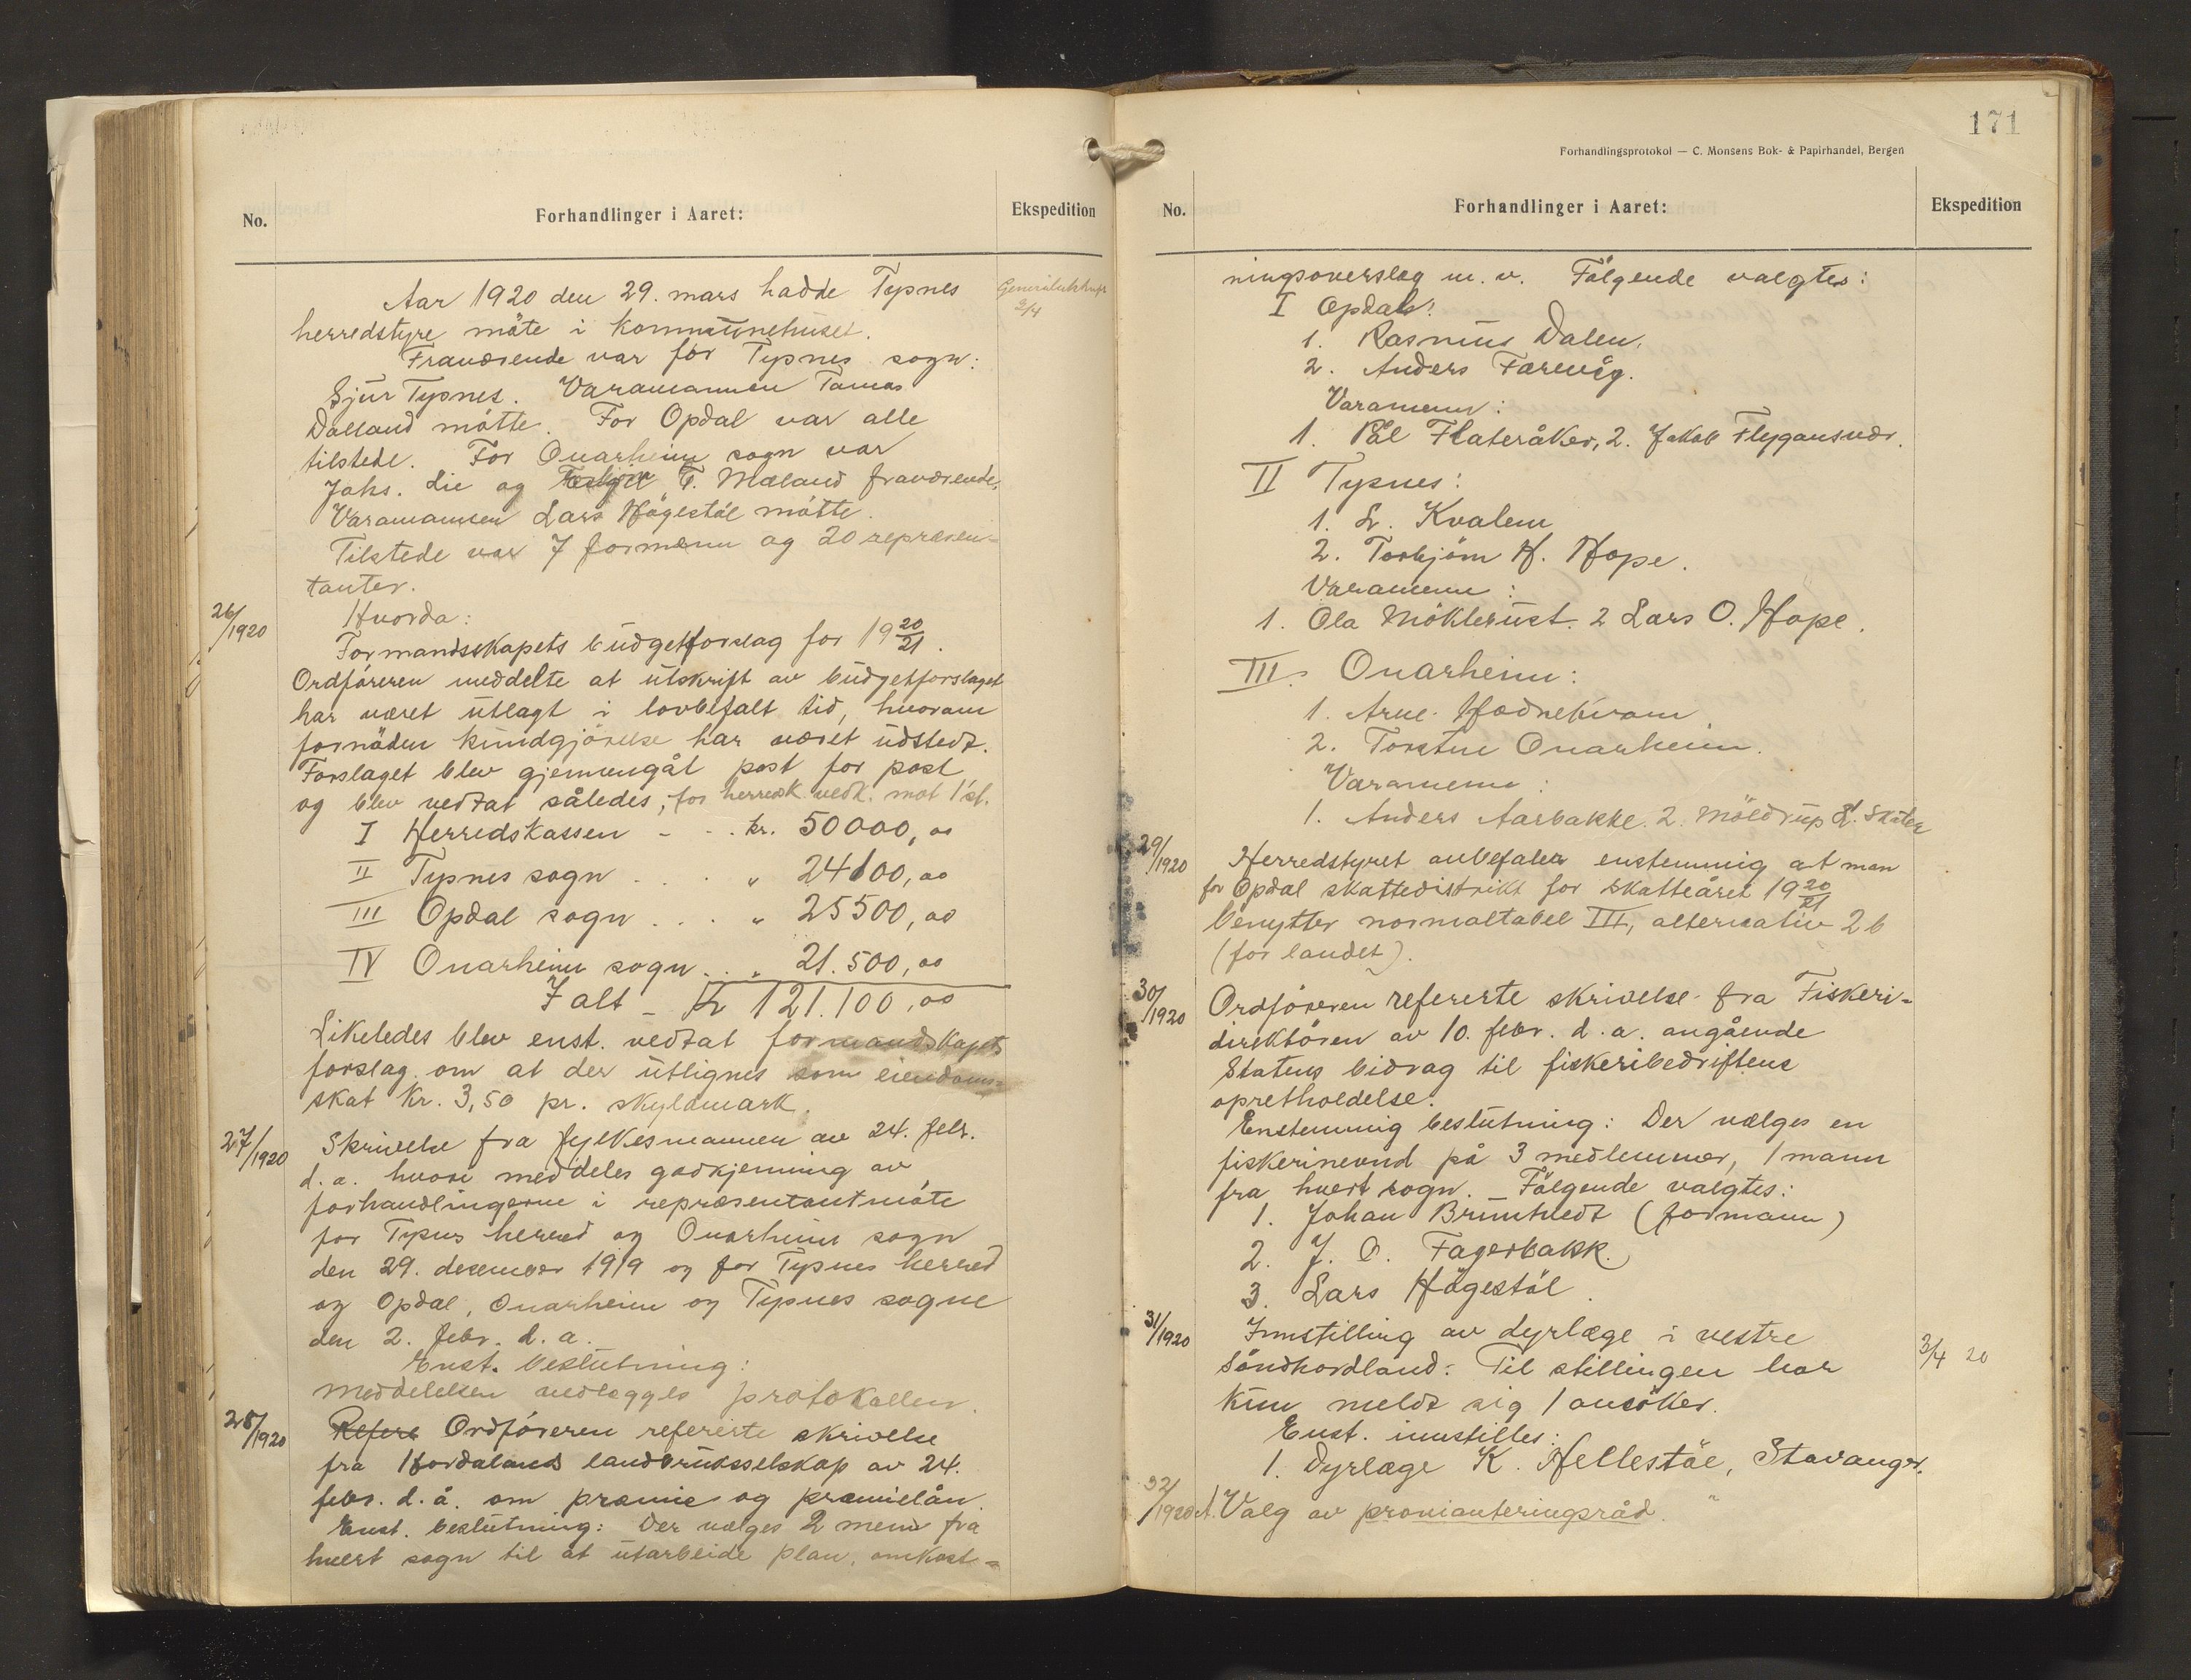 No.
Forhandlinger i Aaret:
Ekspedition
Aar 1920 den 29. mars hadde Tysnes
Generalutskrift
2/4
herredstyre møte i kommunehuset.
Fraværende var for Tysnes sogn:
Sjur Tysnes. Varamannen Tomas
Dalland møtte. For Opdal var alle
tilstede. For Onarheim sogn var
Johs. Lie og T. Mæland fraværende.
Varamannen Lars Høgestøl møtte.
Tilstede var 7 formenn og 20 represen-
tanter.
26/1920
Hvorda:
Formandsskapets budgetforslag for 19 20/21.
Ordføreren meddelte at utskrift av budgetforslaget
har været utlagt i lovbefalt tid, hvorom
fornøden kundgjørelse har været udstedt.
Forslaget blev gjennemgåt post for post
og blev vedtat således, for herredsk. vedk. mot 1 st.
I Herredskassen - - . kr. 50000,00
II Tysnes sogn . . . " 24100,00
III Opdal sogn . . . " 25500,00
IV Onarheim sogn . . " 21.500,00
I alt - Kr 121.100,00
Likeledes blev enst. vedtat formandskapets
forslag om at der utlignes som eiendoms-
skat kr. 3,50 pr. skyldmark.
27/1920
Skrivelse fra fylkesmannen av 24. febr.
d.a. hvori meddeles godkjenning av
forhandlingerne i representantmøte
for Tysnes herred og Onarheim sogn
den 29. desember 1919 og for Tysnes herred
og Opdal, Onarheim og Tysnes sogne
den 2. febr. d.a.
Enst. beslutning:
Meddelelsen vedlegges protokollen.
28/1920
Refere Ordføreren refererte skrivelse
fra Hordalands landbruksselskap av 24.
febr. d.å. om præmie og præmielån.
Enst. beslutning: Der vælges 2 menn fra
hvert sogn til at utarbeide plan, omkost-
171
Forhandlingsprotokol — C. Monsens Bok- & Papirhandel, Bergen
No.
Forhandlinger i Aaret:
Ekspedition
ningsoverslag m.v. Følgende valgtes:
I Opdal:
1. Rasmus Dalen.
2. Anders Færevåg.
Varamenn:
1. Pål Flateråker, 2. Jakob Flygansvær.
II Tysnes:
1. L. Kvalem
2. Torbjørn H. Hope.
Varamenn:
1. Ola Møklerust. 2 Lars O. Hope.
III. Onarheim:
1. Arne Hodnekvam.
2. Torstein Onarheim.
Varamenn:
1. Anders Aarbakke. 2. Møldrup
29/1920
Herredstyret anbefaler enstemmig at man
for Opdal skattedistrikt for skatteåret 19 20/21
benytter normaltabel III, alternativ 2 b
(for landet).
30/1920
Ordføreren refererte skrivelse fra Fiskeri-
direktøren av 10. febr. d.a. angående
Statens bidrag til fiskeribedriftens
opretholdelse.
Enstemmig beslutning: Der vælges en
fiskerinevnd på 3 medlemmer, 1 mann
fra hvert sogn. - Følgende valgtes:
1. Johan Bruntvedt (formann)
2. J. O. Fagerbakk.
3. Lars Høgestøl.
31/1920
Innstilling av dyrlæge i vestre
3/4 20
Søndhordland: Til stillingen har
kun meldt sig 1 ansøker.
Enst. innstilles:
1. Dyrlæge K. Hellestøe, Stavanger.
32/1920
A. Valg av provianteringsråd.